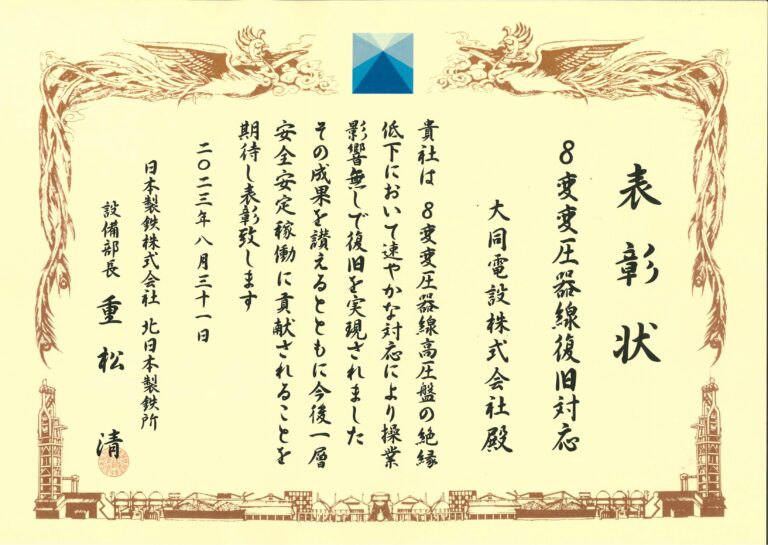 表彰状
8変変圧器線復旧対応
大同電設株式会社殿
貴社は 8変変圧器線高圧盤の絶縁
低下において速やかな対応により操業
影響無しで復旧を実現されました
その成果を讃えるとともに今後一層
安全安定稼働に貢献されることを
期待し表彰致します
二〇二三年八月三十一日
日本製鉄株式会社 北日本製鉄所
設備部長 重松 清